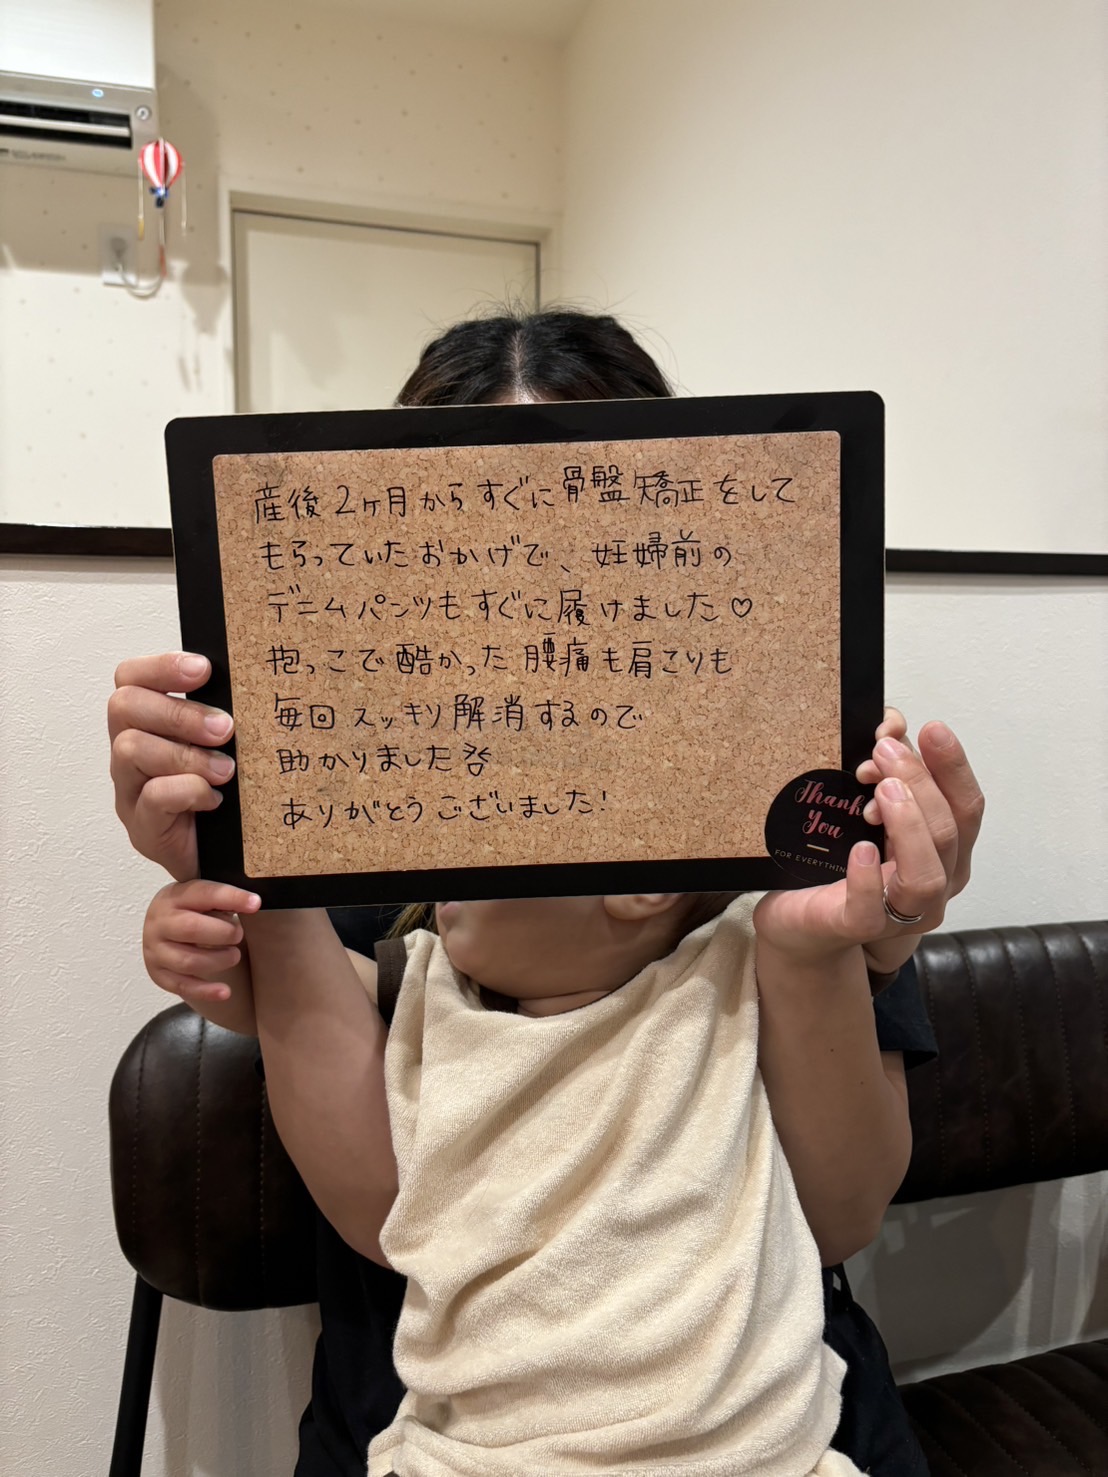 産後2ヶ月からすぐに骨盤矯正をして
もらっていたおかげで、妊婦前の
デニムパンツもすぐに履けました♡
抱っこで酷かった腰痛も肩こりも
毎回スッキリ解消するので
助かりました
ありがとうございました!
Thank
You
FOR EVERYTHIN